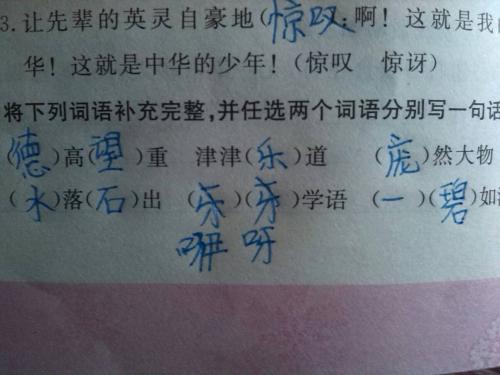 3.让先辈的英灵自豪地(惊叹:啊!这就是我
华!这就是中华的少年!(惊叹 惊讶)
将下列词语补充完整,并任选两个词语分别写一句话
(德)高(望)重 津津(乐)道 (庞)然大物
(水)落(石)出 (牙)(牙)学语 (一)(碧)如
咿 呀